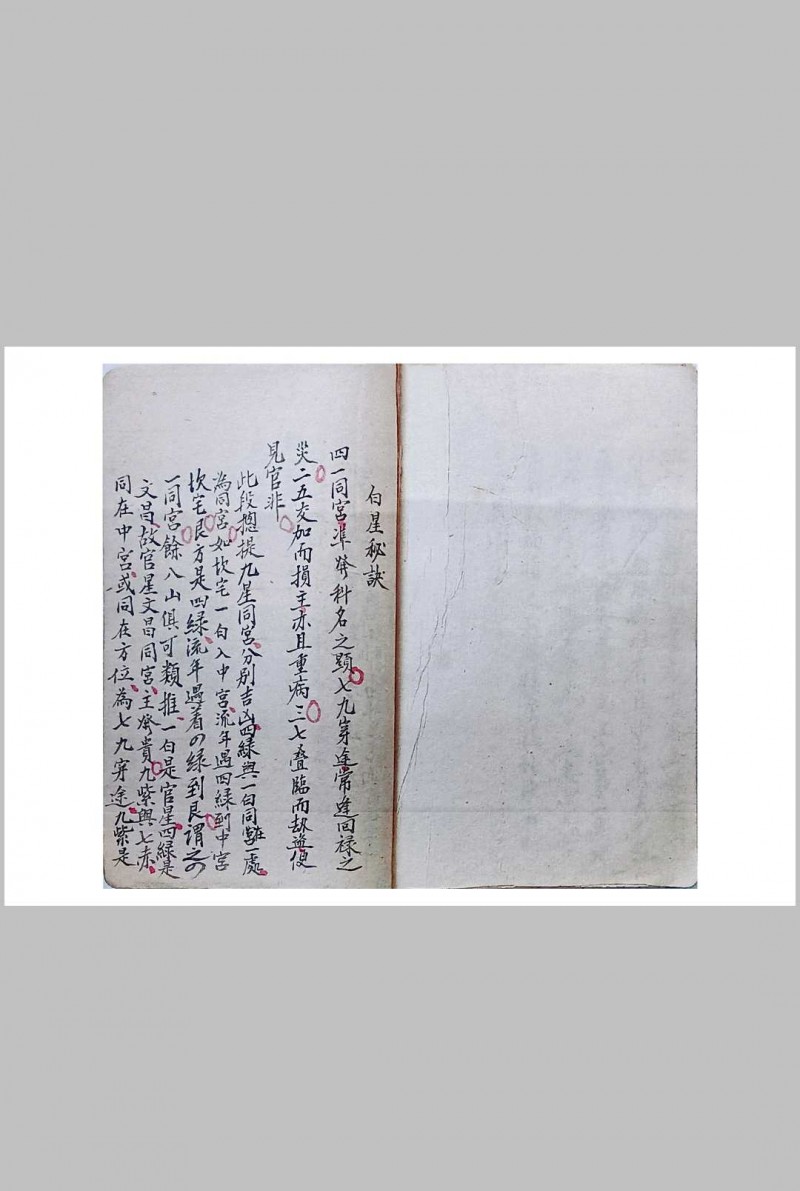 白星秘訣
四一同宮凖發科名之顕七九穿途常逢回禄之
災二五交加而損主亦且重病三七叠臨而劫盗便
見官非
此段摠提九星同宮分别吉凶四緑與一白同在一處
為同宮如坎宅一白入中宮流年遇四緑到中宮
坎宅艮方是四緑流年遇着の緑到艮謂之の
一同宮餘八山俱可類推一白是官星四緑是
文昌故官星文昌同宮主發貴九紫與七赤
同在中宮或同在方位為七九穿途九紫是